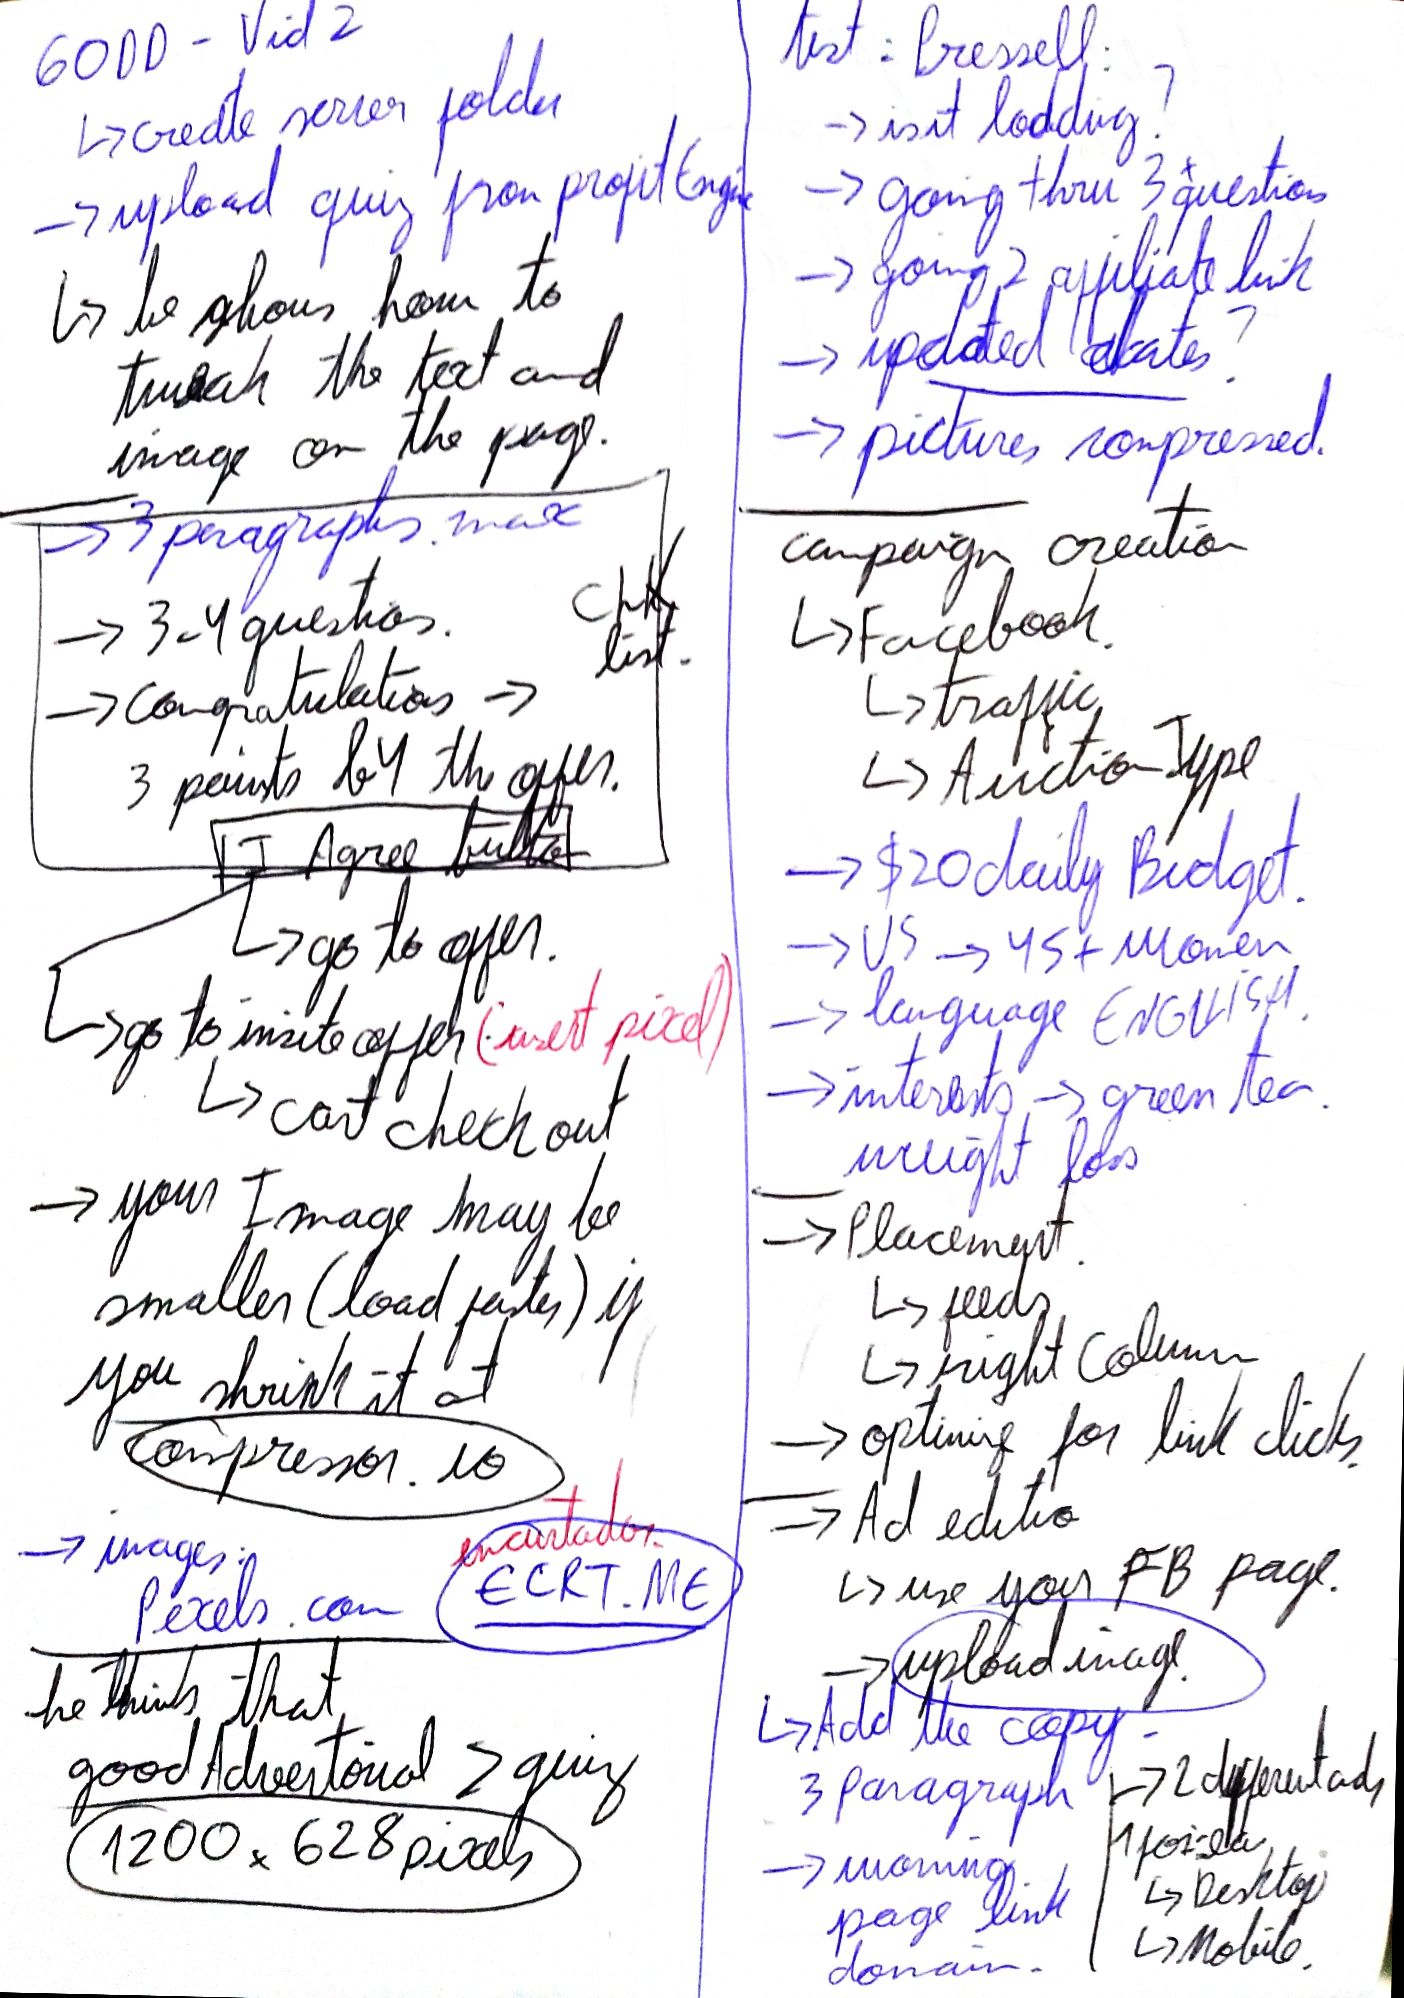 60DD - Vid 2
↳ create server folder
→ upload quiz from profit Engine
↳ he shows how to
tweak the text and
image on the page.
→ 3 paragraphs max
→ 3-4 questions.
Chk
list.
→ Congratulations →
3 points b4 the offer.
I Agree button
↳ go to offer.
↳ go to insite offer (insert pixel)
↳ cart check out
→ your Image may be
smaller (load faster) if
you shrink it at
compressor.io
→ images:
Pexels.com
encurtador.
ECRT.ME
he thinks that
good Advertorial > quiz
1200 x 628 pixels
test: Pressell:
→ is it loading?
→ going thru 3 questions
→ going 2 affiliate link
→ updated dates?
→ pictures compressed.
campaign creation
↳ Facebook.
↳ traffic
↳ Auction Type
→ $20 daily Budget.
→ US → 45+ women
→ language ENGLISH.
→ interests → green tea.
weight loss
→ Placement.
↳ feeds
↳ right Column
→ optimize for link clicks.
→ Ad editio
↳ use your FB page.
→ upload image.
↳ Add the copy -
3 paragraph
→ working
page link
domain.
↳ 2 different ads
1 for ea
↳ Desktop
↳ Mobile.